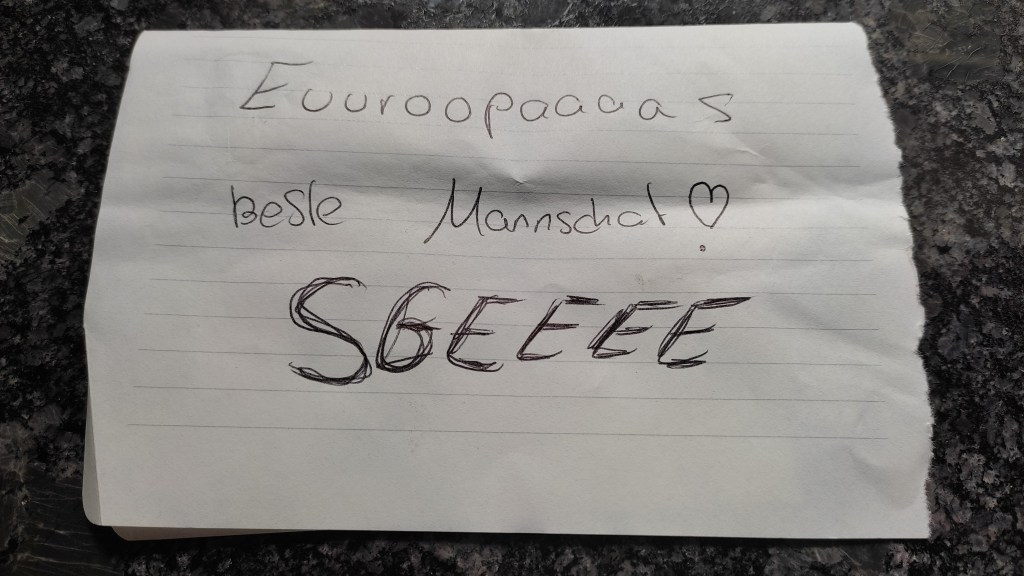 Euuroopaaaas
beste Mannschat ♡
SGEEEE